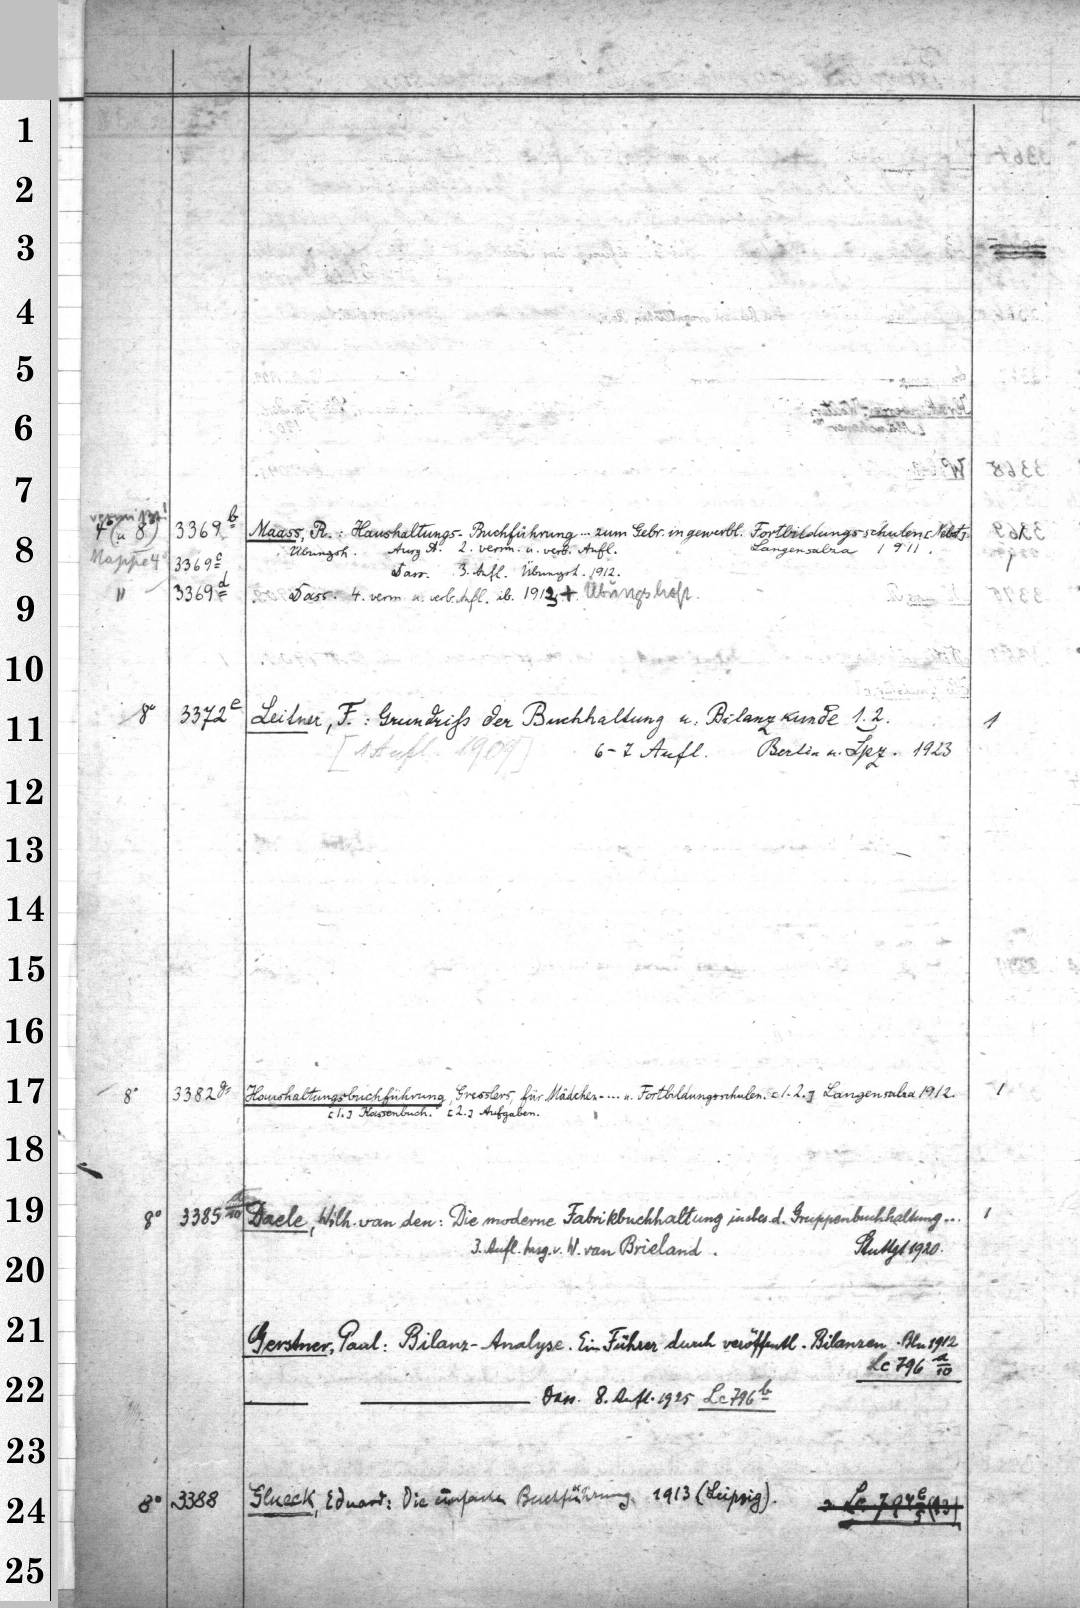 1
2
3
4
5
6
7
4° (u 8°) 3369 b Maass, R.: Haushaltungs-Buchführung ... zum Gebr. in gewerbl. Fortbildungsschulen [Nebst]
8
Übungsh. Ausg A. 2. verm. u. verb. Aufl. Langensalza 1911.
Mappe 4° 3369 c Dass. 3. Aufl. Übungsh. 1912.
" 3369 d Dass. 4. verm. u. verb. Aufl. ib. 1913 + Übungsheft.
9
10
8° 3372 e Leitner, F.: Grundriß der Buchhaltung u. Bilanzkunde 1. 2. 1
11
[1 Aufl. 1909] 6-7 Aufl. Berlin u. Lpz. 1923
12
13
14
15
16
17
8° 3382 g Haushaltungsbuchführung, Gresslers, für Mädchen- ... u. Fortbildungsschulen. [1.2.] Langensalza 1912. 1
[1.] Kassenbuch. [2.] Aufgaben.
18
19
8° 3385 a/10 Daele, Wilh. van den: Die moderne Fabrikbuchhaltung insbes. d. Gruppenbuchhaltung... 1
3. Aufl. hrsg. v. W. van Brieland. Stuttgt 1920.
20
21
Gerstner, Paul: Bilanz-Analyse. Ein Führer durch veröffentl. Bilanzen. Bln 1912
Lc 796 a/10
22
Dass. 8. Aufl. 1925 Lc 796 b
23
8° 3388 Glueck, Eduard: Die einfache Buchführung. 1913 (Leipzig).
24
25